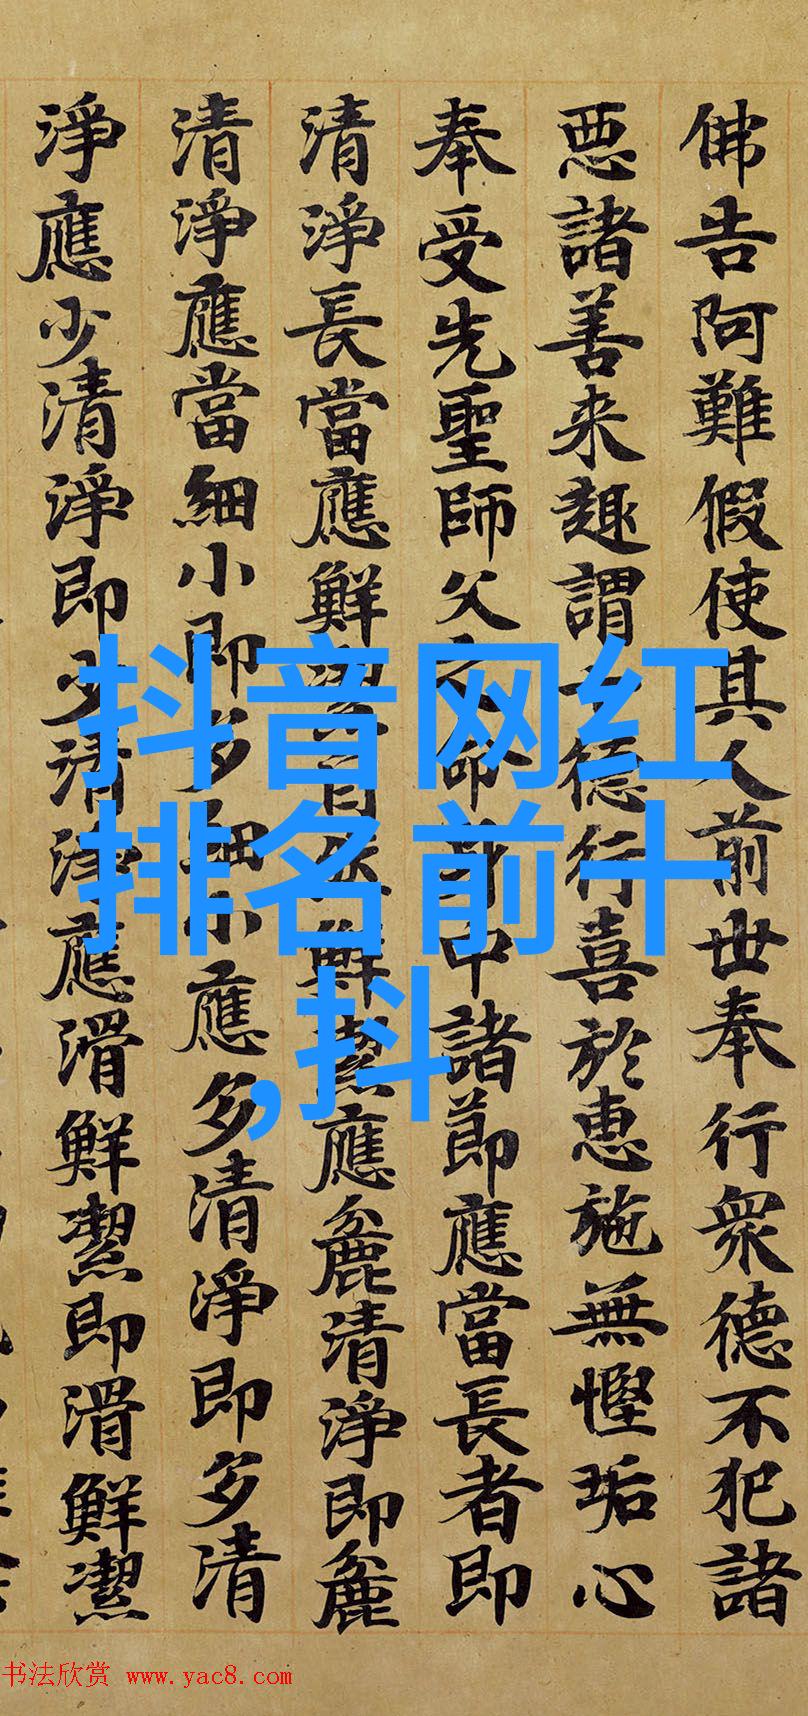 佛告阿難假使其人前世奉行衆德不犯諸
悪諸善来趣謂德行喜於惠施無慳垢心
奉受先聖師父之命身中諸節應當長者即
清淨長當應鮮潔鮮潔應麁清淨即麁
清淨應當細小即多細小應多清淨即多清
淨應少清淨即少清淨應滑鮮潔即滑鮮潔
抖音网红
排名前十
,抖
书法欣赏 www.yac8.com